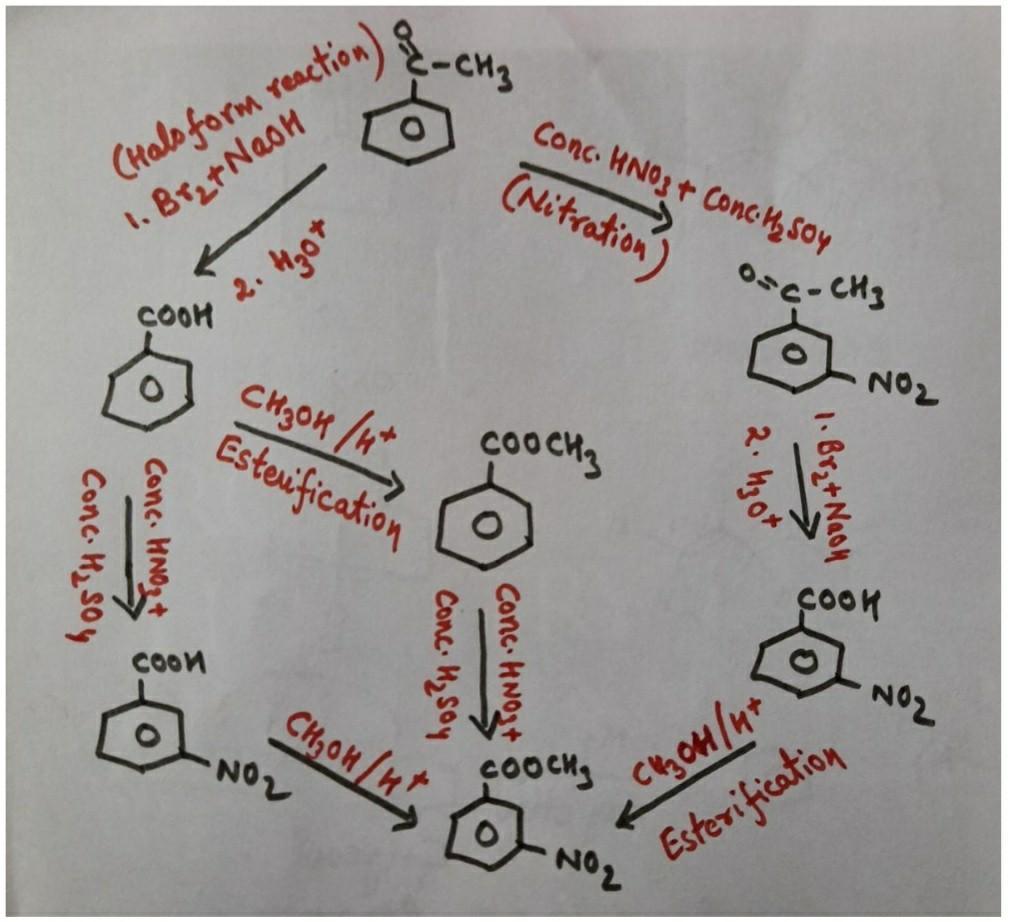 O
C-CH3
(Haloform reaction)
1. Br2+NaOH
2. H3O+
Conc. HNO3 + Conc.H2SO4
(Nitration)
O=C-CH3
NO2
COOH
CH3OH/H+
Esterification
COOCH3
1. Br2+NaOH
2. H3O+
Conc. HNO3+
Conc. H2SO4
Conc. HNO3+
Conc. H2SO4
COOH
NO2
COOH
NO2
CH3OH/H+
CH3OH/H+
Esterification
COOCH3
NO2